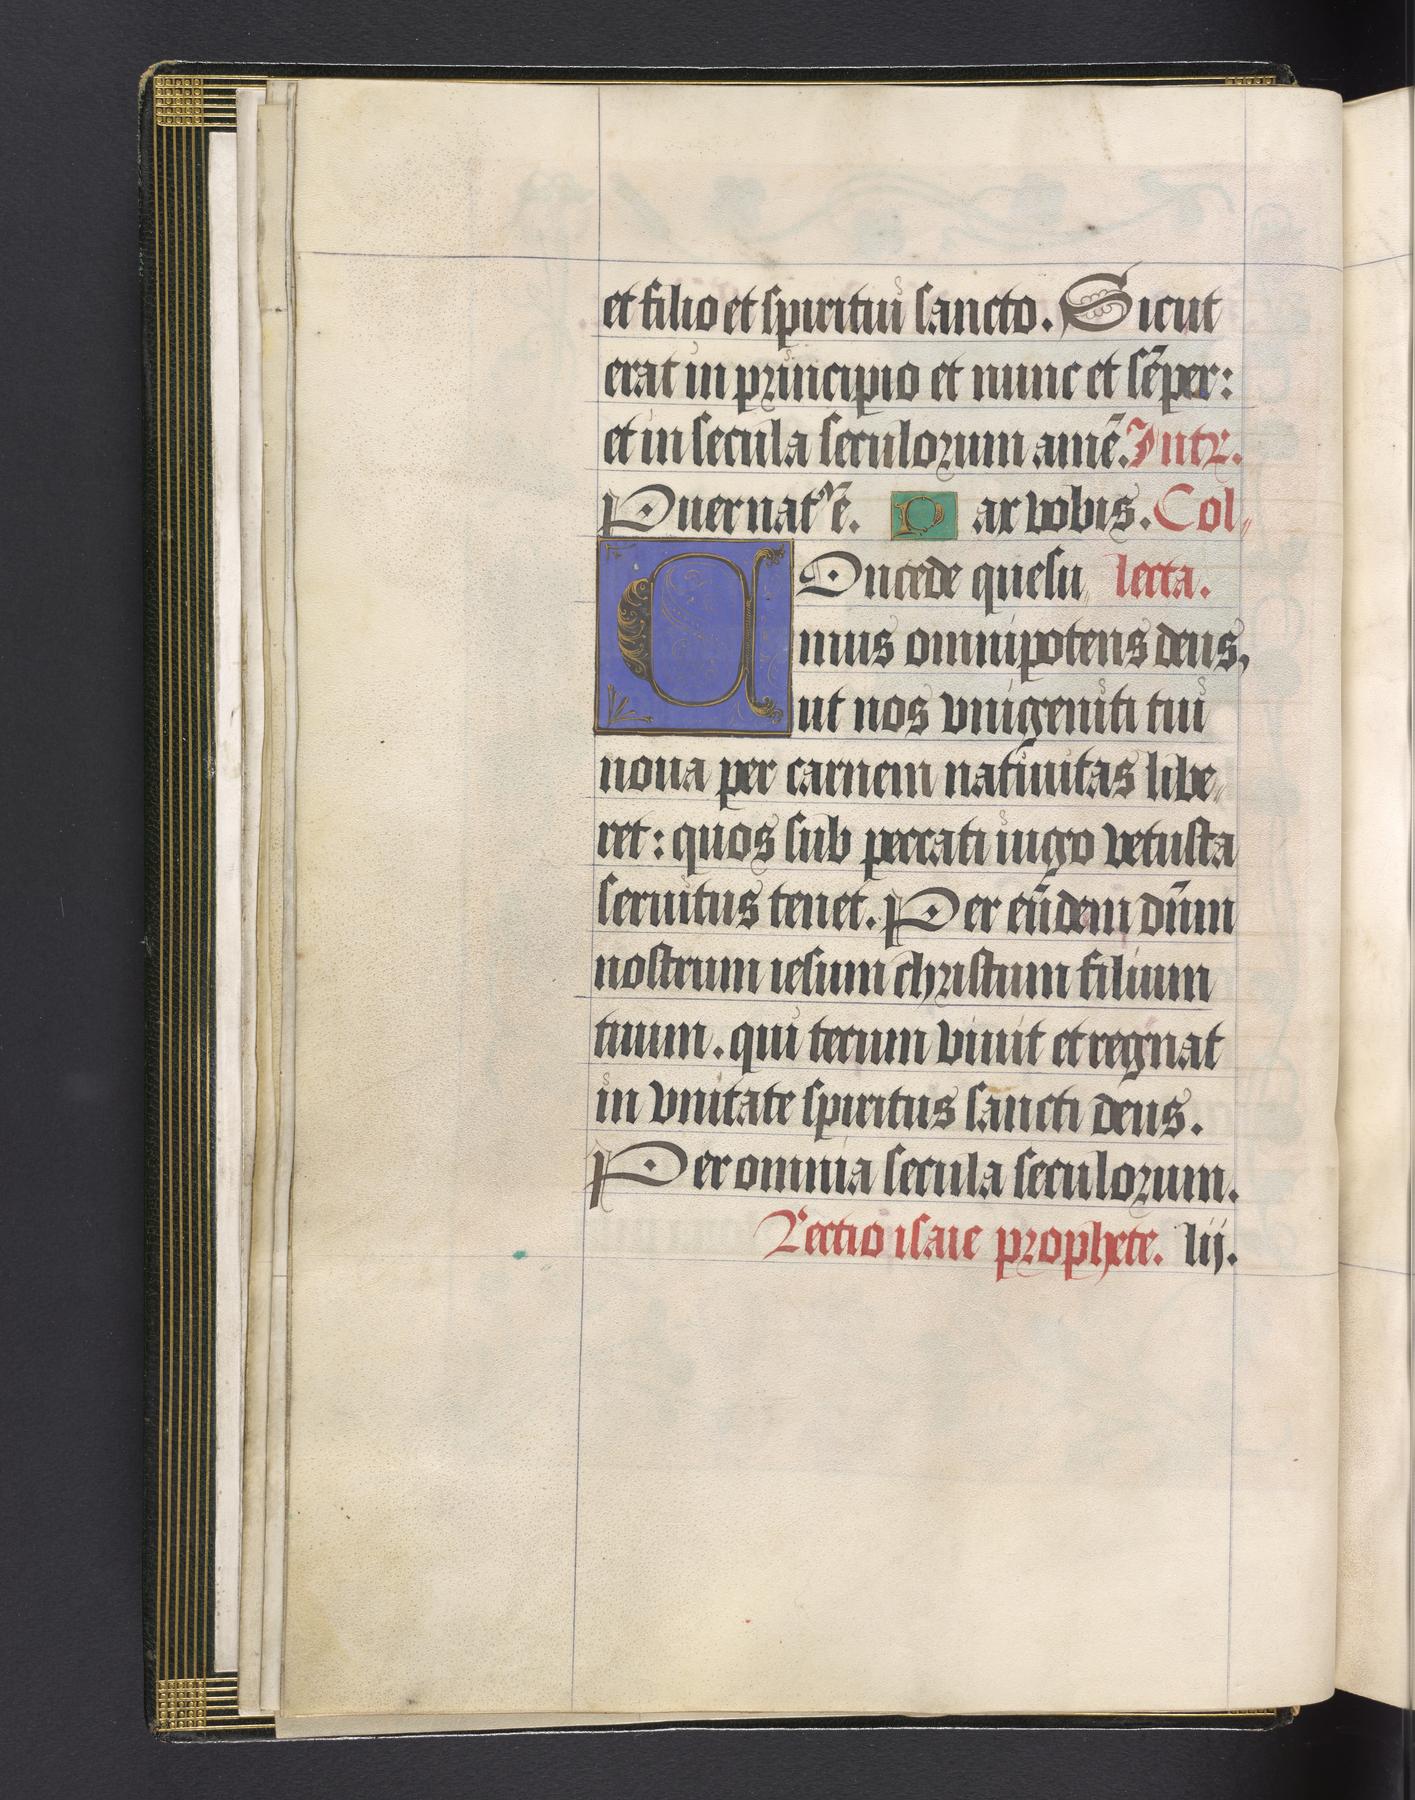 et filio et spiritui sancto. Sicut
erat in principio et nunc et sēper:
et in secula seculorum amē. Intr.
Puer nat⁹ ē. Pax vobis. Col-
COncede quesu- lecta.
mus omnipotens deus,
ut nos vnigeniti tui
noua per carnem natiuitas libe-
ret: quos sub peccati iugo vetusta
seruitus tenet. Per eūdem dn̄m
nostrum iesum christum filium
tuum. qui tecum viuit et regnat
in vnitate spiritus sancti deus.
Per omnia secula seculorum.
Lectio isaie prophete. lij.